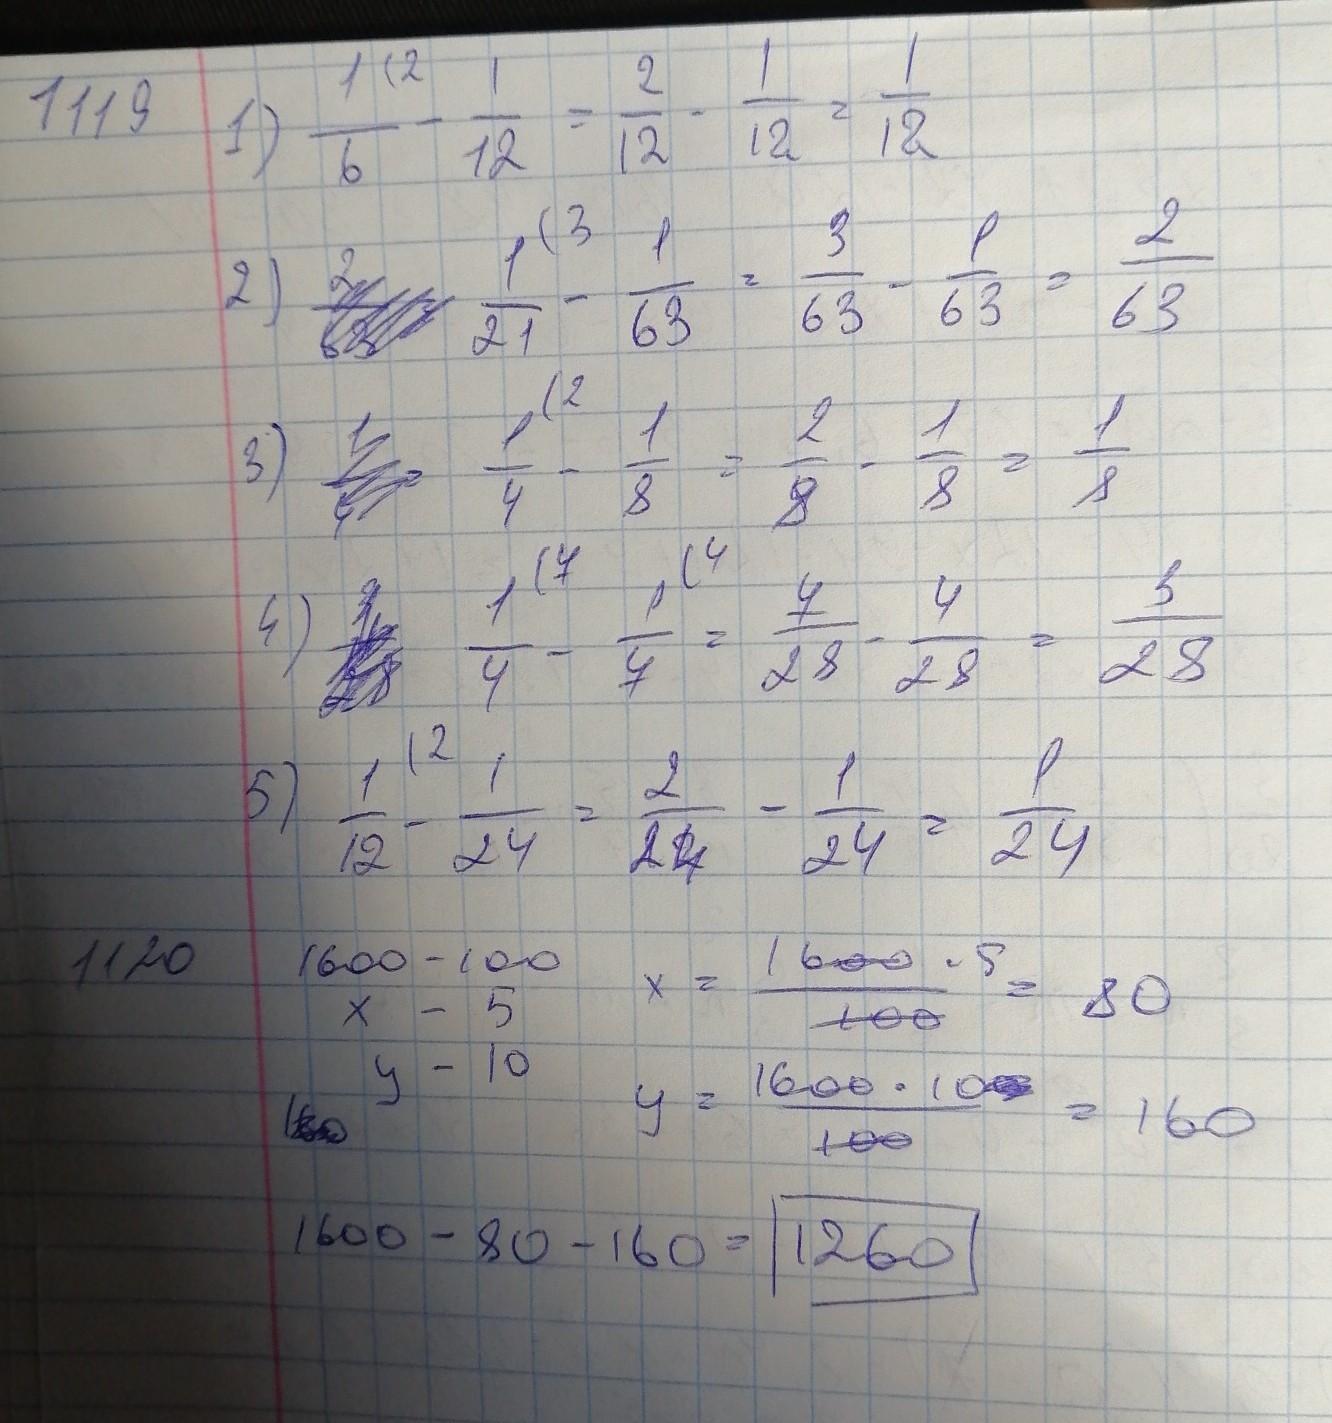 1119 1) 1/6 (2 - 1/12 = 2/12 - 1/12 = 1/12
2) 1/21 (3 - 1/63 = 3/63 - 1/63 = 2/63
3) 1/4 (2 - 1/8 = 2/8 - 1/8 = 1/8
4) 1/4 (7 - 1/7 (4 = 7/28 - 4/28 = 3/28
5) 1/12 (2 - 1/24 = 2/24 - 1/24 = 1/24
1120 1600 - 100 x = 1600 · 5 / 100 = 80
x - 5
y - 10 y = 1600 · 10 / 100 = 160
1600 - 80 - 160 = 1260